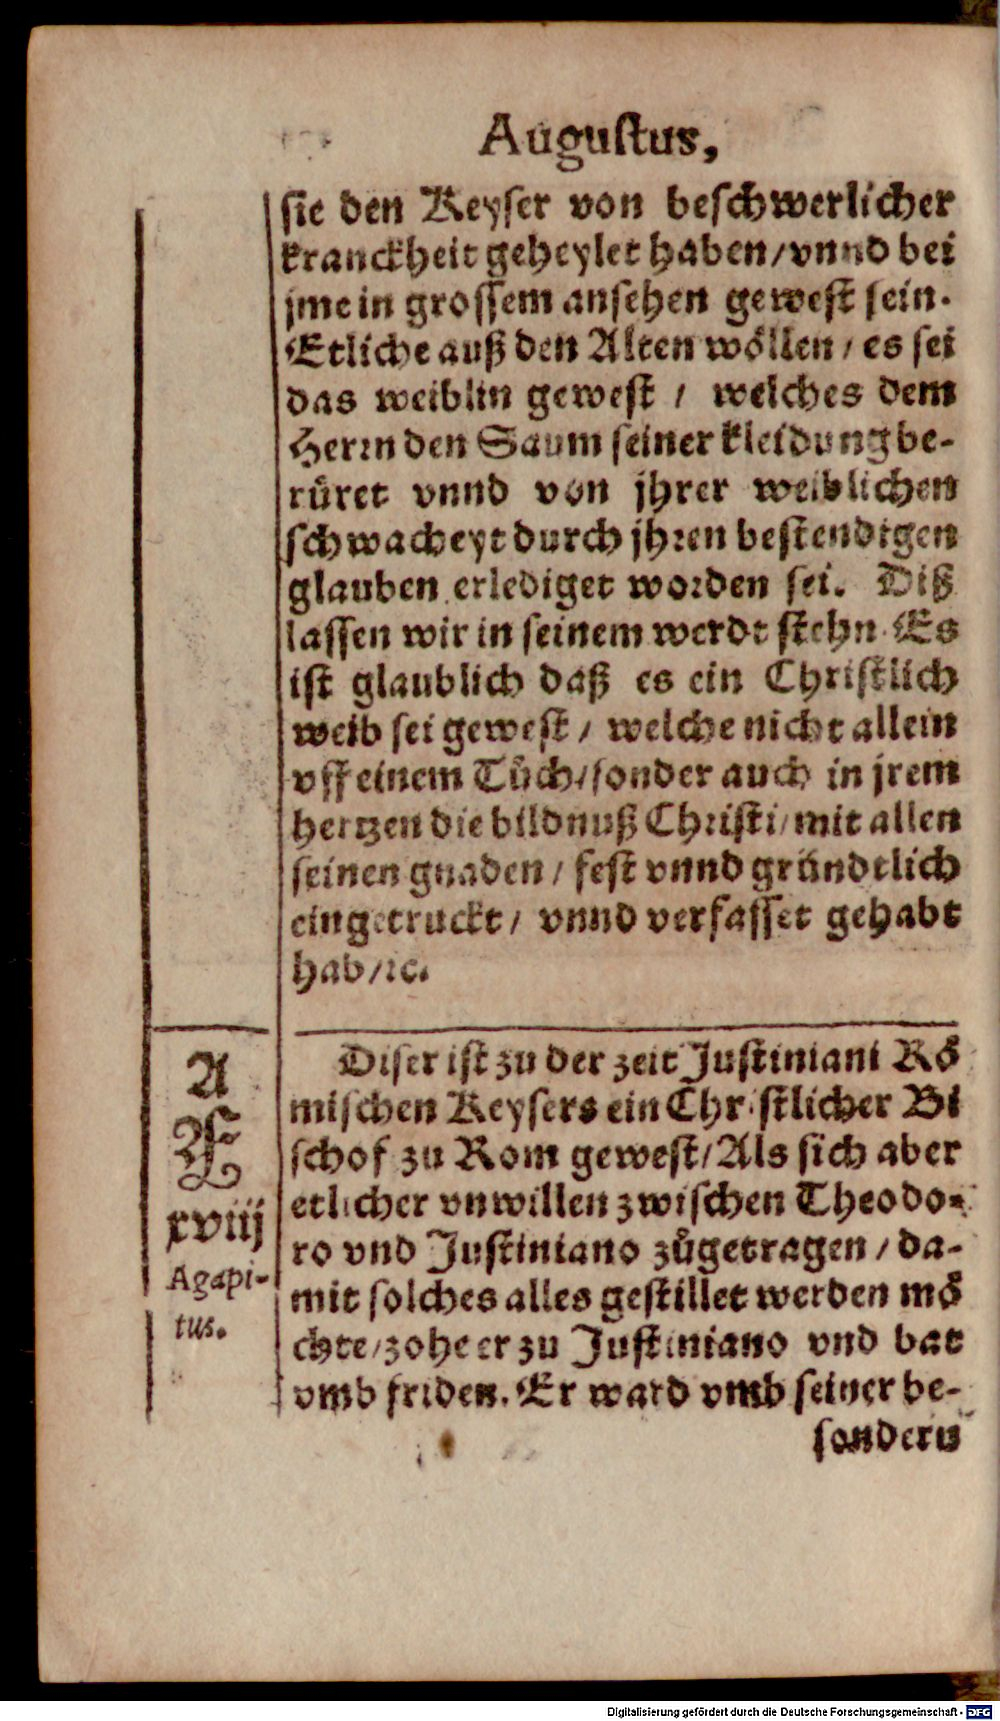 Augustus,
sie den Keyser von beschwerlicher
kranckheit geheylet haben/vnnd bei
jme in grossem ansehen gewest sein.
Etliche auß den Alten wöllen/es sei
das weiblin gewest / welches dem
Herrn den Saum seiner kleidung be-
rüret vnnd von jhrer weiblichen
schwacheyt durch jhren bestendigen
glauben erlediget worden sei. Diß
lassen wir in seinem werdt stehn. Es
ist glaublich daß es ein Christlich
weib sei gewest / welche nicht allein
vff einem Tůch/sonder auch in jrem
hertzen die bildnuß Christi/mit allen
seinen gnaden / fest vnnd gründtlich
eingetruckt / vnnd verfasset gehabt
hab/ꝛc.
A
Æ
xviij
Agapi-
tus.
Diser ist zu der zeit Justiniani Rö
mischen Keysers ein Christlicher Bi
schof zu Rom gewest/Als sich aber
etlicher vnwillen zwischen Theodo-
ro vnd Justiniano zůgetragen / da-
mit solches alles gestillet werden mö
chte/zohe er zu Justiniano vnd bat
vmb friden. Er ward vmb seiner be-
sondern
Digitalisierung gefördert durch die Deutsche Forschungsgemeinschaft - DFG